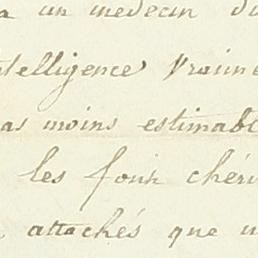 a un medecin du
ntelligence vraime
as moins estimabl
les font chéri
attachés que